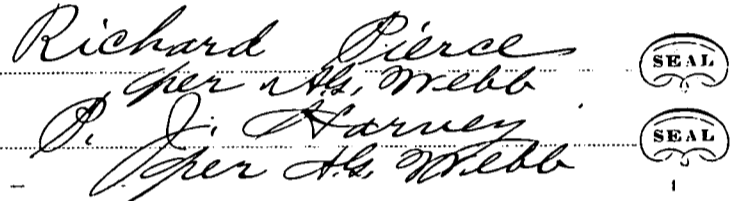 Richard Pierce SEAL
per H.G. Webb
P. J. Harvey SEAL
per H.G. Webb